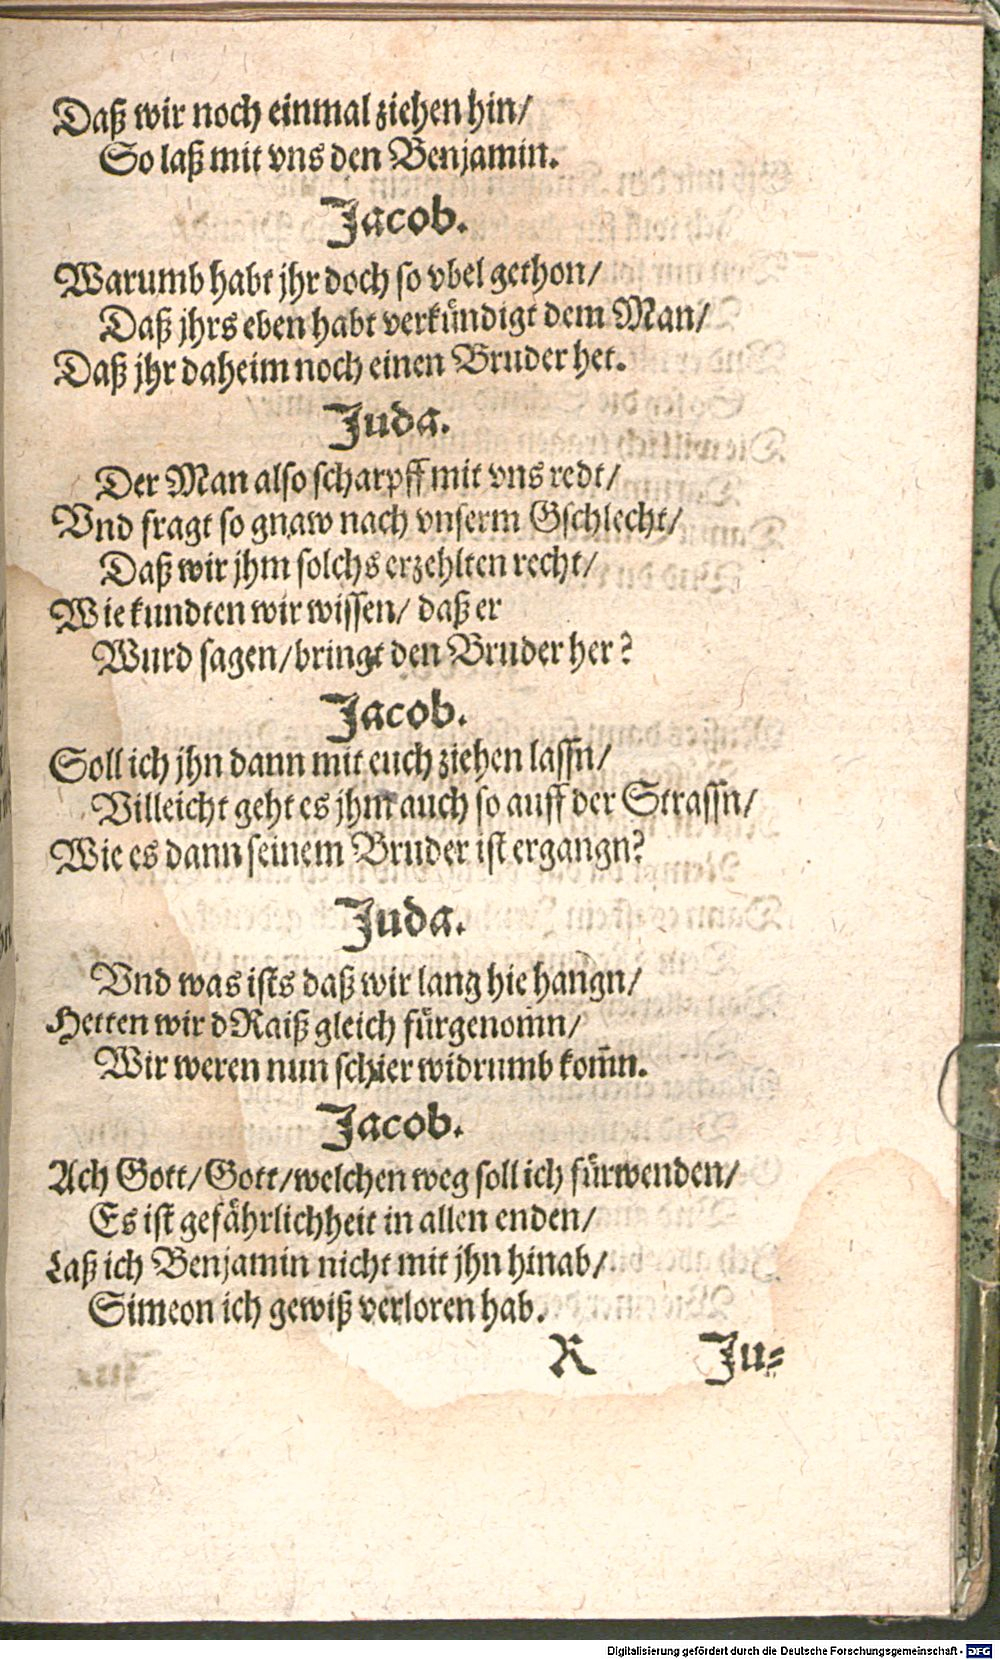 Daß wir noch einmal ziehen hin/
So laß mit vns den Benjamin.
Jacob.
Warumb habt jhr doch so vbel gethon/
Daß jhrs eben habt verkündigt dem Man/
Daß jhr daheim noch einen Bruder het.
Juda.
Der Man also scharpff mit vns redt/
Vnd fragt so gnaw nach vnserm Gschlecht/
Daß wir jhm solchs erzehlten recht/
Wie kundten wir wissen/ daß er
Wurd sagen/ bringt den Bruder her?
Jacob.
Soll ich jhn dann mit euch ziehen lassn/
Villeicht geht es jhm auch so auff der Strassn/
Wie es dann seinem Bruder ist ergangn?
Juda.
Vnd was ists daß wir lang hie hangn/
Hetten wir dRaiß gleich fürgenom̃n/
Wir weren nun schier widrumb kom̃n.
Jacob.
Ach Gott/ Gott/ welchen weg soll ich fürwenden/
Es ist gefährlichheit in allen enden/
Laß ich Benjamin nicht mit jhn hinab/
Simeon ich gewiß verloren hab.
R Ju-
Digitalisierung gefördert durch die Deutsche Forschungsgemeinschaft - DFG